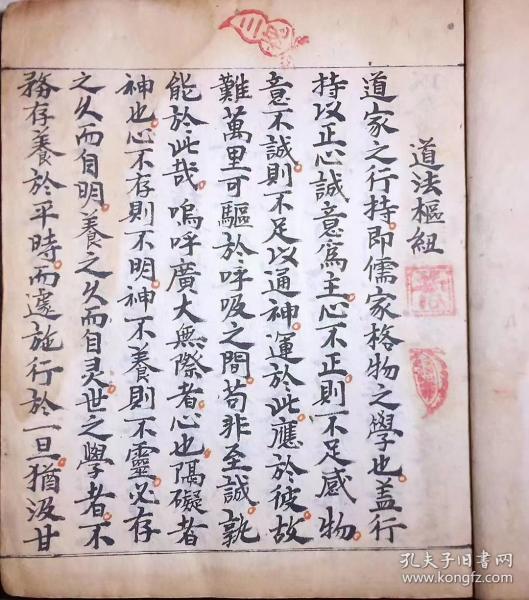 道法樞紐
道家之行持即儒家格物之學也蓋行
持以正心誠意爲主心不正則不足感物
意不誠則不足以通神運於此應於彼故
難萬里可驅於呼吸之間苟非至誠孰
能於此哉嗚呼廣大無際者心也隔礙者
神也心不存則不明神不養則不靈必存
之久而自明養之久而自灵世之學者不
務存養於平時而遽施行於一旦猶汲甘
孔夫子旧书网
www.kongfz.com